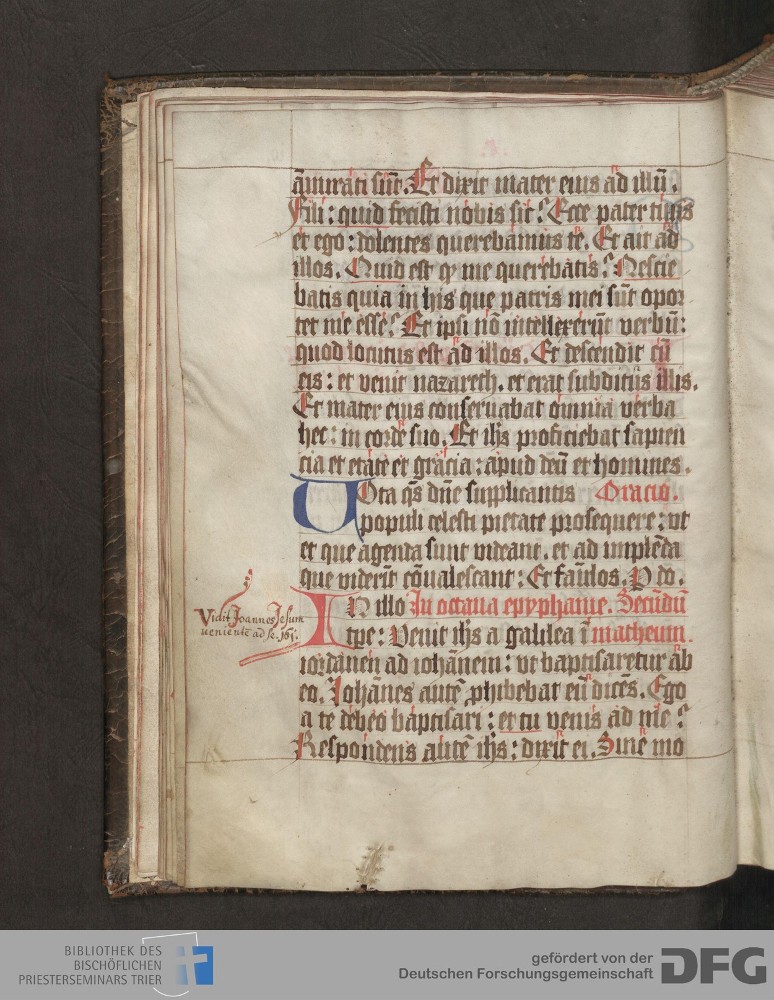 a̅mirati su̅t. Et dixit mater eius ad illu̅.
Fili: quid fecisti nobis sic? Ecce pater tuus
et ego: dolentes querebamus te. Et ait ad
illos. Quid est ꝙ me querebatis? Nescie
batis quia in his que patris mei su̅t opor
tet me esse? Et ipsi no̅ intellexeru̅t verbu̅:
quod locutus est ad illos. Et descendit cu̅
eis: et venit nazareth. et erat subditus illis.
Et mater eius conseruabat omnia verba
hec: in corde suo. Et ih̅s proficiebat sapien
cia et etate et gracia: apud deu̅ et homines.
Vota q̅s dn̅e supplicantis Oracio.
populi celesti pietate prosequere: vt
et que agenda sunt videant. et ad imple̅da
que videri̅t co̅ualescant: Et fa̅ulos. P do.
IN illo In octaua epyphanie. Secu̅du̅
tpe: Venit ih̅s a galilea i̅ matheum.
iordanen ad ioha̅nem: vt baptisaretur ab
eo. Joha̅nes aute̅ ꝓhibebat eu̅ dice̅s. Ego
a te debeo baptisari: et tu venis ad me?
Respondens aute̅ ih̅s: dixit ei. Sine mo
Vidit Joannes Jesum
veniente̅ ad se. 161.
BIBLIOTHEK DES
BISCHÖFLICHEN
PRIESTERSEMINARS TRIER
gefördert von der
Deutschen Forschungsgemeinschaft
DFG